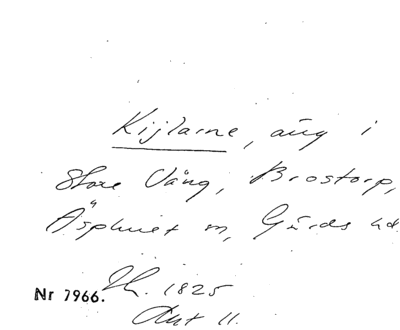 Kijlarne, äng i
Store Vång, Brostorp,
Äsphult sn, Gärds hd.
Nr 7966. 1825
Akt 11.